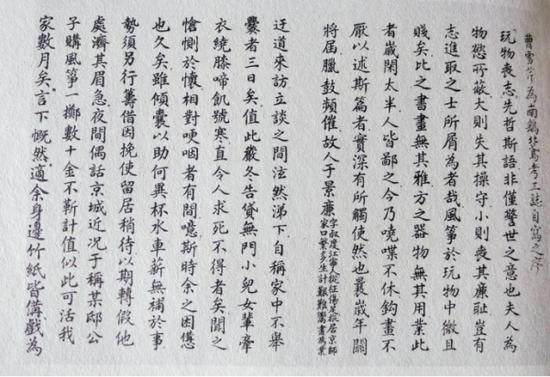 曹雪芹為南鷂北鳶考工誌自寫之序
玩物喪志先哲斯語非僅警世之意也夫人為
物慾所蔽大則失其操守小則喪其廉耻豈有
志進取之士所屑為者哉風箏於玩物中微且
賤矣比之書畫無其雅方之器物無其用業此
者歲閑太半人皆鄙之今乃嘵喋不休鈎畫不
厭以述斯篇者實深有所觸使然也曩歲年關
將届臘鼓頻催故人于景廉
字叔度江寧人從征傷足旋居京師
家口繁多生計艱難鬻畫為業
迂道來訪立談之間泫然涕下自稱家中不舉
爨者三日矣值此嚴冬告貸無門小兒女輩牽
衣繞膝啼飢號寒直令人求死不得者矣聞之
愴惻於懷相對哽咽者有間噫斯時余之困憊
也久矣雖傾囊以助何異杯水車薪無補於事
勢須另行籌借因挽使留居稍待以期轉假他
處濟其眉急夜間偶話京城近况于稱某邸公
子購風箏一擲數十金不靳計值似此可活我
家數月矣言下慨然適余身邊竹紙皆備戲為